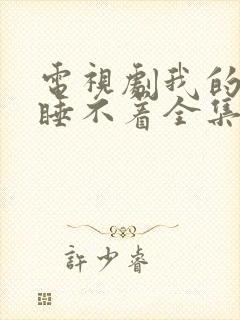 電視劇我的
睡不着全集
許少睿